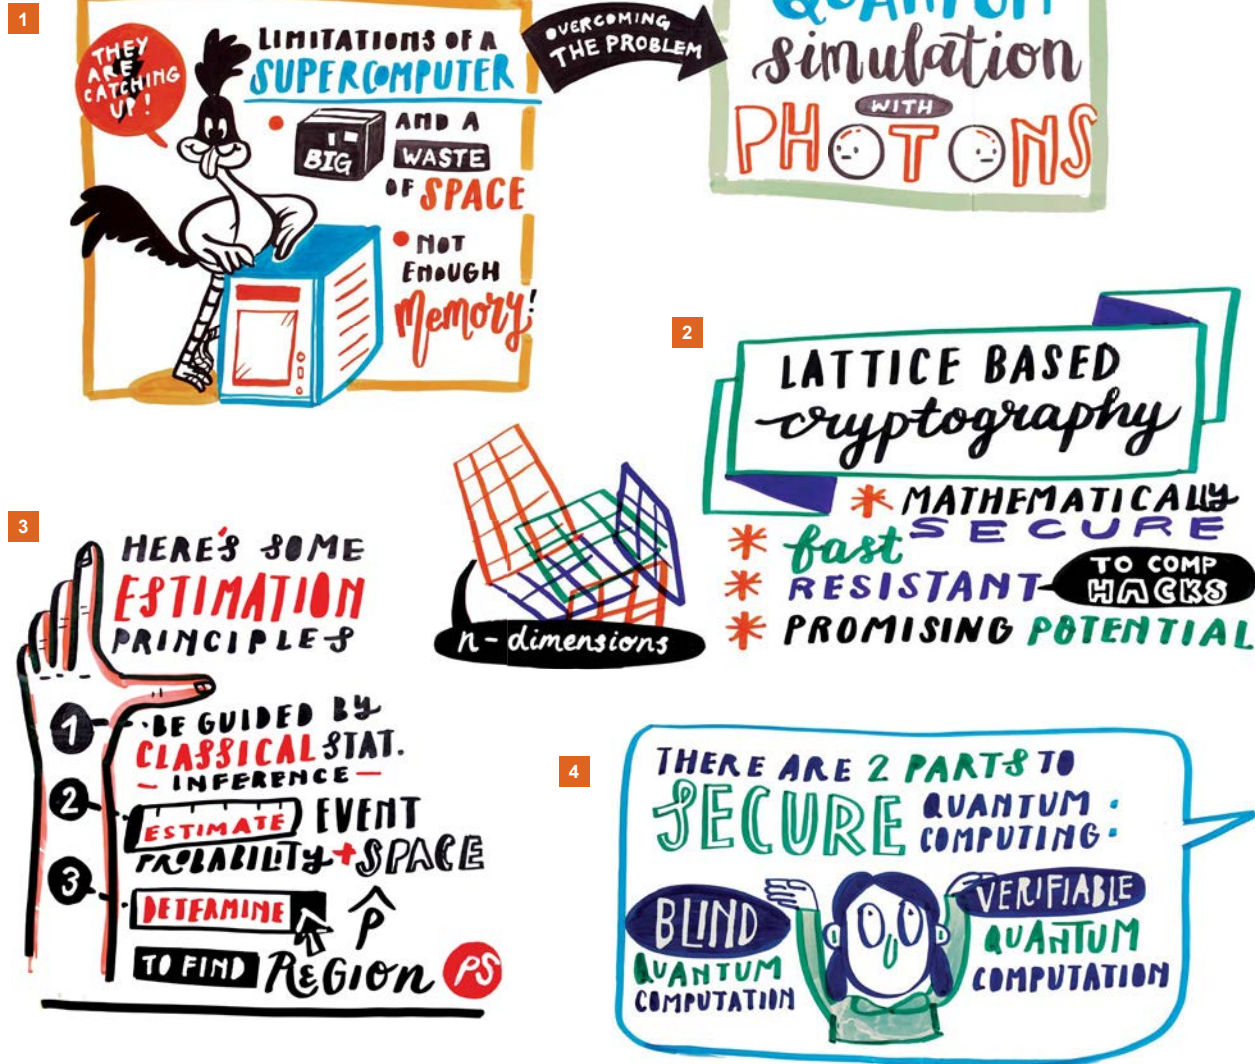 1
THEY
ARE
CATCHING
UP!
LIMITATIONS OF A
SUPERCOMPUTER
BIG
AND A
WASTE
OF SPACE
NOT
ENOUGH
Memory!
OVERCOMING
THE PROBLEM
QUANTUM
simulation
WITH
PHOTONS
2
LATTICE BASED
cryptography
* MATHEMATICALLY
SECURE
* fast
* RESISTANT
TO COMP
HACKS
* PROMISING POTENTIAL
n-dimensions
3
HERE'S SOME
ESTIMATION
PRINCIPLES
1
BE GUIDED BY
CLASSICAL STAT.
- INFERENCE -
2
ESTIMATE EVENT
PROBABILITY + SPACE
3
DETERMINE P̂
TO FIND REGION PS
4
THERE ARE 2 PARTS TO
SECURE QUANTUM
COMPUTING:
BLIND
QUANTUM
COMPUTATION
VERIFIABLE
QUANTUM
COMPUTATION